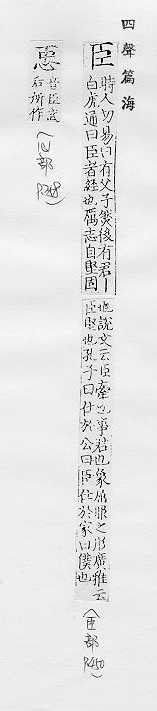 四聲篇海
臣
時人切易曰有父子然後有君丨
白虎通曰臣者經也厲志自堅固
也說文云臣牽也事君也象屈服之形廣雅云
臣堅也孔子曰仕於公曰臣仕於家曰僕也
(臣部 P450)
𢘑
音臣武
后所作
(心部 P248)